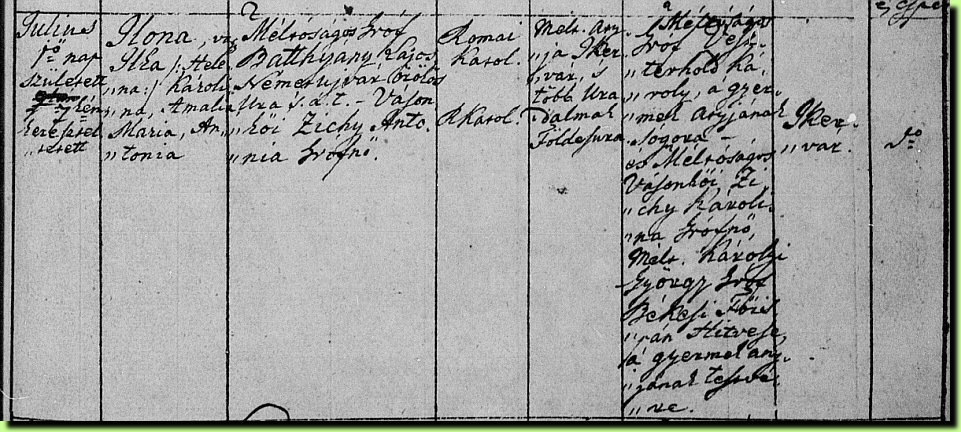 ejusde
Julius
1ő nap
született
7 kén
keresztel
„tetett
Ilona, vagy
Ilka /: Hele„
„na:/ Károli„
na, Amalia
Maria, An„
„tonia
Méltóságos Gróf
Batthyány Lajos
Németujvár örökös
Ura s. a. t. – Váson„
„kői Zichy Anto„
„nia Grófnő.
Romai
Katol.
R Katol.
Mélt. Any„
ja Iker„
vár, s
több Ura„
dalmak
Földesura
Méltóságos
Gróf Vesz„
„terhold Ká„
roly, a gyer„
mek atyjának
sógora –
és Méltóságos
Vásonkői Zi„
„chy Károli„
„na Grófnő,
Mélt. Károlyi
György Gróf
Békesi Főis„
„pán Hitvese,
á gyermek any„
„jának testvé„
„re.
Iker„
„var.
dº